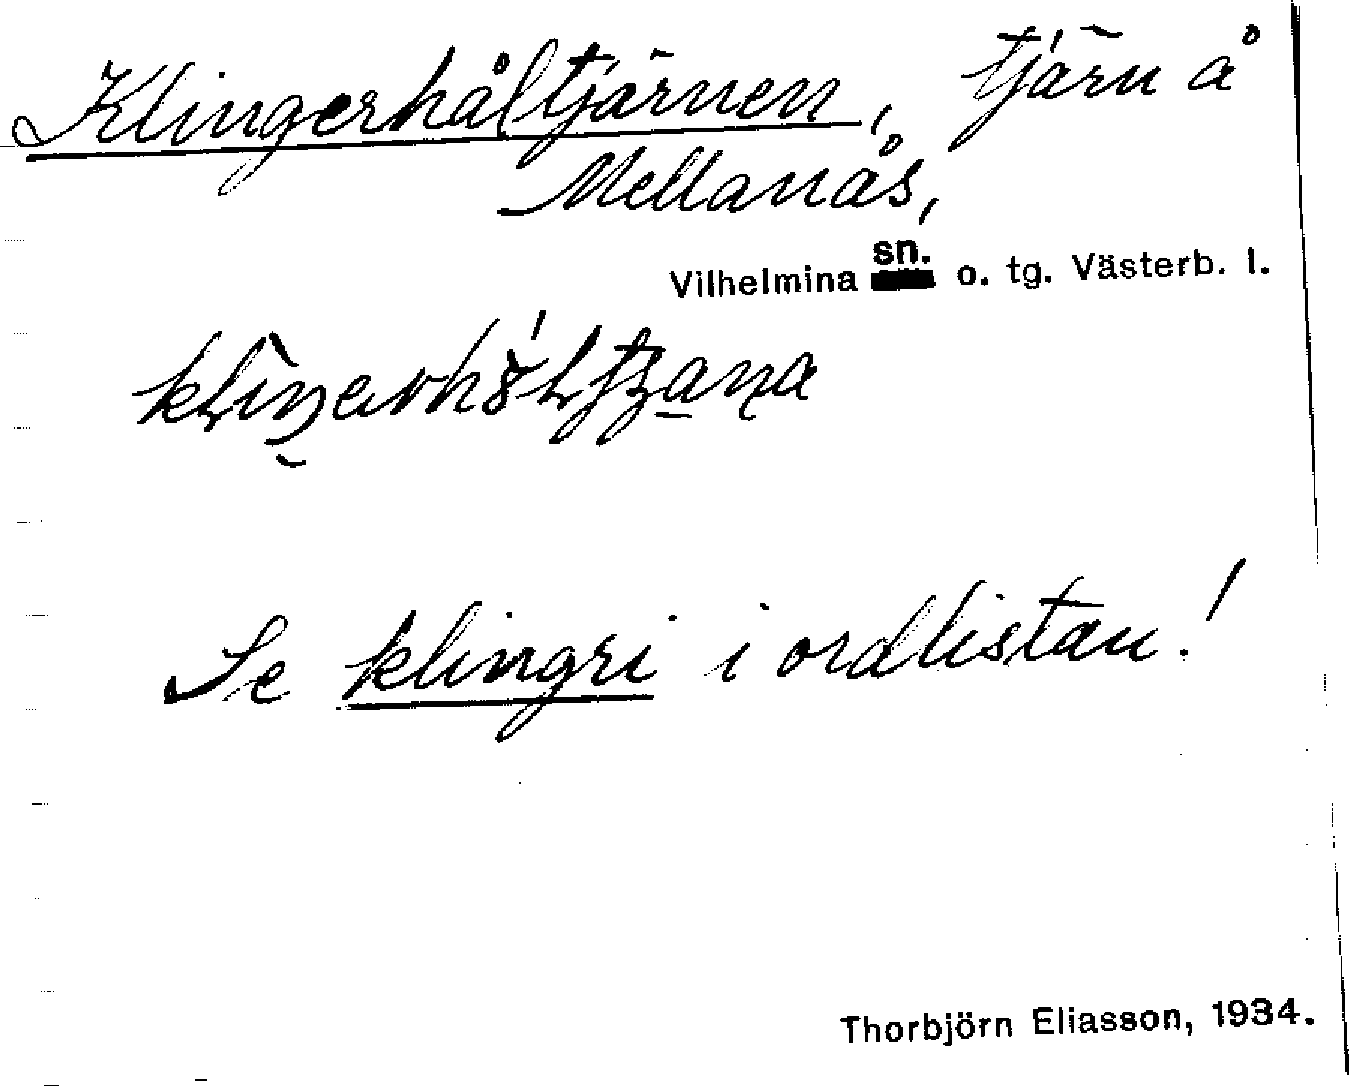 Klingerhåltjärnen, tjärn å
Mellanås,
sn.
Vilhelmina o. tg. Västerb. l.
Se klingri i ordlistan!
Thorbjörn Eliasson, 1934.